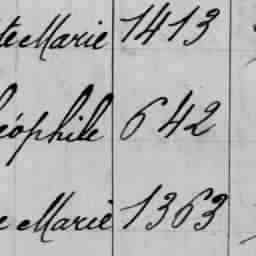 te Marie 1413
éophile 642
e Marie 1363